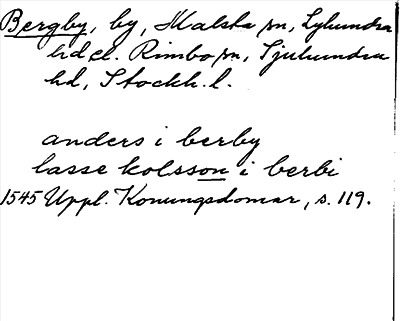 Bergby, by, Malsta sn, Lyhundra
hd el. Rimbo sn, Sjuhundra
hd, Stockh. l.
anders i berby
lasse kolsson i berbi
1545 Uppl. Konungsdomar, s. 119.